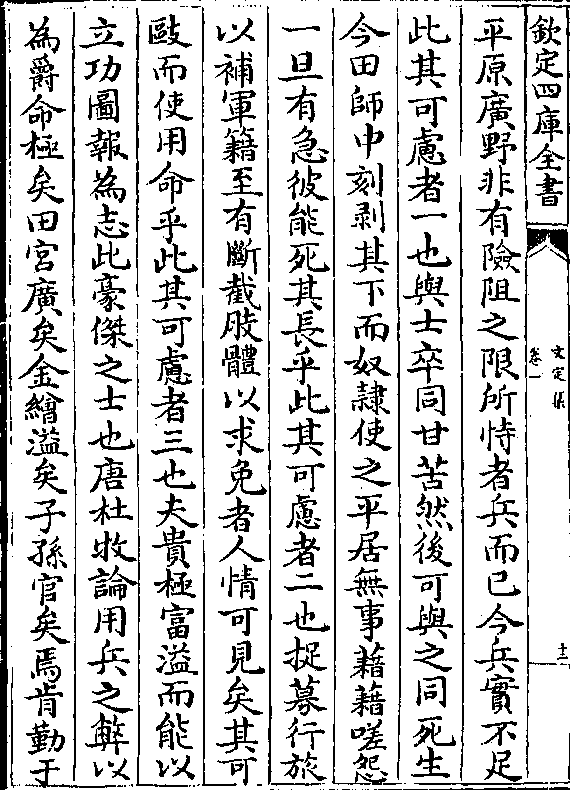 欽定四庫全書
文定集
卷一
十一
平原廣野非有險阻之限所恃者兵而已今兵實不足
此其可慮者一也與士卒同甘苦然後可與之同死生
今田師中刻剥其下而奴隷使之平居無事藉藉嗟怨
一旦有急彼能死其長乎此其可慮者二也捉募行旅
以補軍籍至有斷截肢體以求免者人情可見矣其可
敺而使用命乎此其可慮者三也夫貴極富溢而能以
立功圖報為志此豪傑之士也唐杜牧論用兵之弊以
為爵命極矣田宮廣矣金繒溢矣子孫官矣焉肯勤于